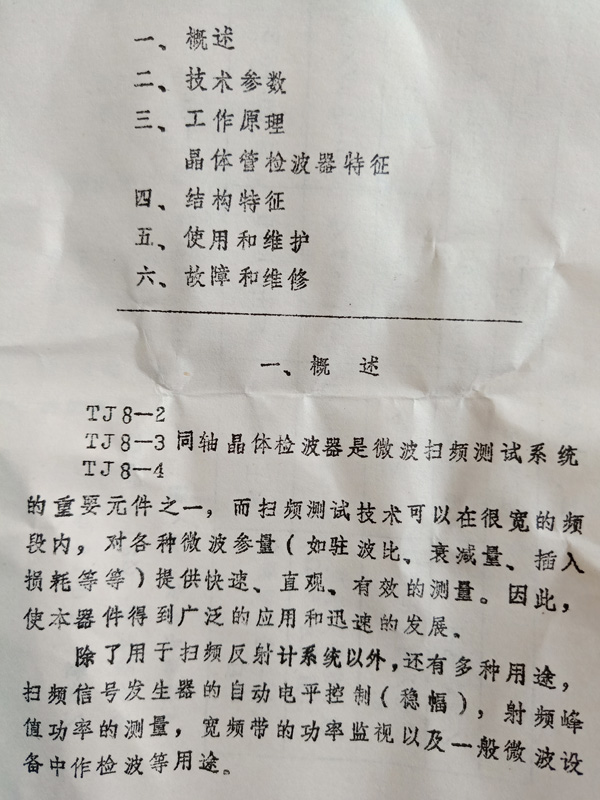 一、概述
二、技术参数
三、工作原理
晶体管检波器特征
四、结构特征
五、使用和维护
六、故障和维修
一、概 述
TJ8—2
TJ8—3同轴晶体检波器是微波扫频测试系统
TJ8—4
的重要元件之一，而扫频测试技术可以在很宽的频
段内，对各种微波参量（如驻波比、衰减量、插入
损耗等等）提供快速、直观、有效的测量。因此，
使本器件得到广泛的应用和迅速的发展。
除了用于扫频反射计系统以外，还有多种用途，
扫频信号发生器的自动电平控制（稳幅），射频峰
值功率的测量，宽频带的功率监视以及一般微波设
备中作检波等用途。